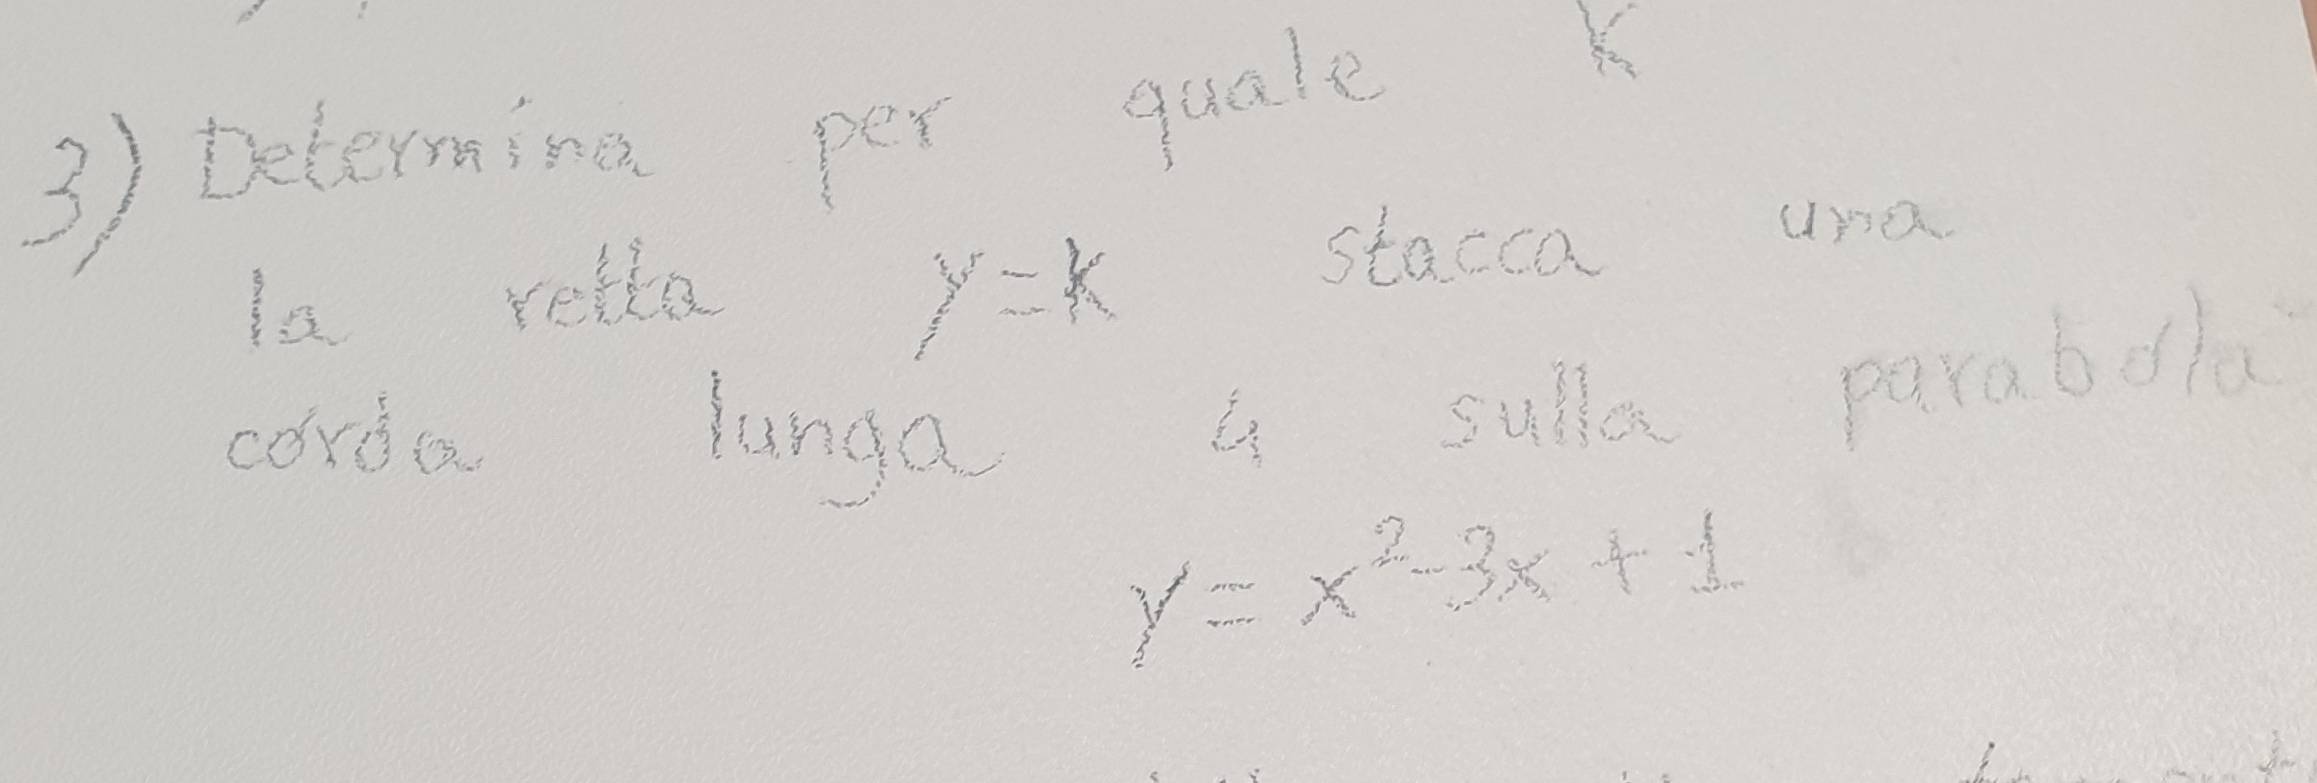 3) Determina per quale K
la retta y=k stacca una
corda lunga 4 sulla parabola
y = x²-3x + 1